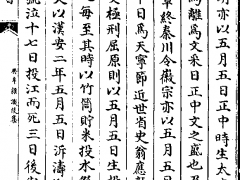 明亦以五月五日正中時生太
爲離爲文采日正中文之盛也
草終秦川令徽宗亦以五月五
日爲天寧節近世省史翁應
文極刑屈原則以五月五日生投
每至其時以竹筒貯米投水
文以漢安二年五月五日泝濤
號泣十七日投江而死三日後